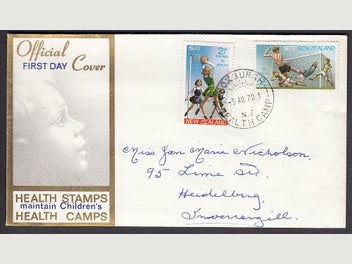 Official
FIRST DAY Cover
HEALTH STAMPS
maintain Children's
HEALTH CAMPS
1970 2½c
HEALTH
NEW ZEALAND
1970 NEW ZEALAND
N.Z.
HEALTH CAMP
Miss Jan Marie Nicholson,
95 Lime St.
Heidelberg,
Invercargill.